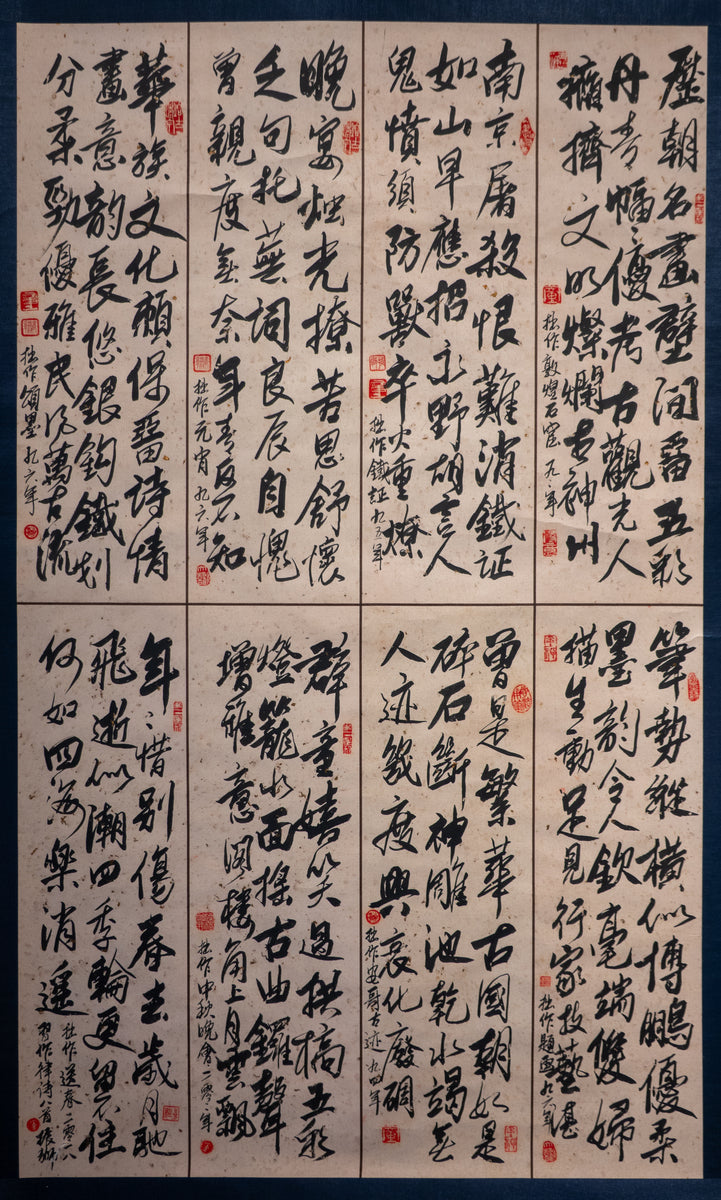 歷朝名畫壁間留五彩
丹青幅〻優考古觀光人
擁擠文明燦爛在神州
拙作敦煌石窟 九一年
南京屠殺恨難消鐵証
如山早應招永野胡言人
鬼憤須防獸卒火重燎
拙作鐵証九五年
晚宴燈光撩苦思舒懷
乏句托蕪詞良辰自愧
曾親度無奈年青段不知
拙作元宵九六年
華族文化願保留詩情
畫意韵長悠銀鈎鐵划
分柔勁優雅民風萬古流
拙作頌墨九六年
筆勢縱橫似博鵬優柔
墨韵令人欽毫端雙婦
描生動足見行家技藝湛
拙作題畫九六年
曾是繁華古國朝如是
碎石斷神雕池乾水竭無
人迹幾度興衰化廢碉
拙作安哥古迹九四年
群童嬉笑過拱橋五彩
燈籠水面搖古曲鑼聲
增雅意閣樓角上月雲飄
拙作中秋晚會二零零年
年〻惜別傷春去歲月馳
飛逝似潮四季輪更留不住
何如四海樂消遙
拙作送春二零一八
習作律詩八首